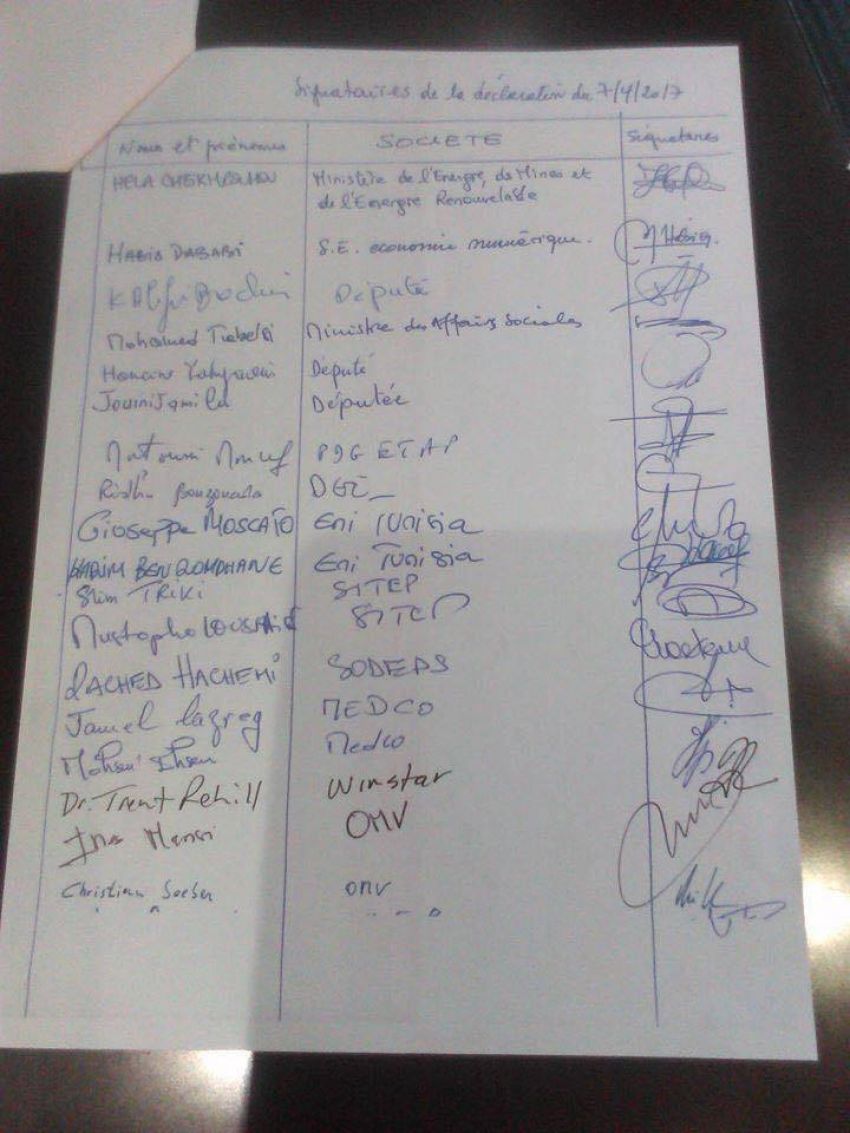 Signataires de la déclaration du 7/4/2017
Noms et prénoms SOCIETE Signatures
HELA CHEKHROUHOU Ministère de l'Energie, des Mines et
de l'Energie Renouvelable
HABIB DABABI S.E. économie numérique.
Député
Mohamed Trabelsi Ministre des Affairs Sociales
Député
Jouini Jamila Députée
PDG ETAP
Ridha Bouzouada DGE
Gioseppe MOSCATO Eni TUNISIA
BEN ROMDHANE Eni TUNISIA
Slim TRIKI SITEP
Mustapha SITEP
RACHED HACHEMI SODEPS
Jamel Lazreg MEDCO
Mohsni Ihsen Medco
Dr. Trent Rehill Winstar
Mansi OMV
Christian Soeber OMV